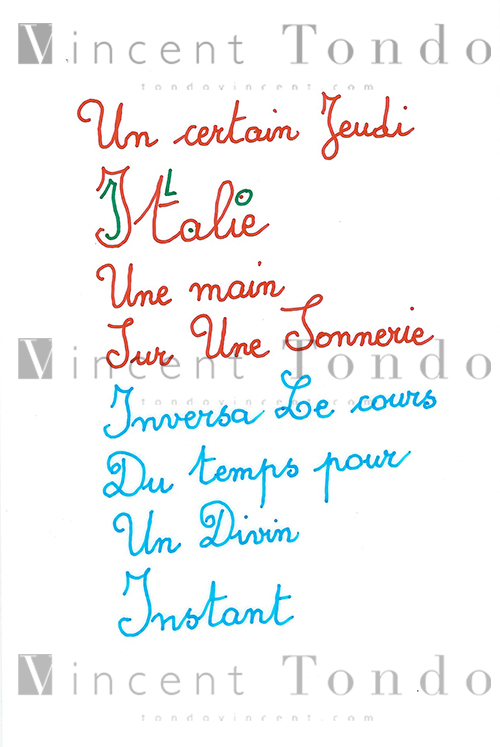 Vincent Tondo
tondovincent.com
Un certain Jeudi
Italie
Une main
Sur Une Sonnerie
Vincent Tondo
Inversa Le cours
Du temps pour
Un Divin
Instant
Vincent Tondo
tondovincent.com